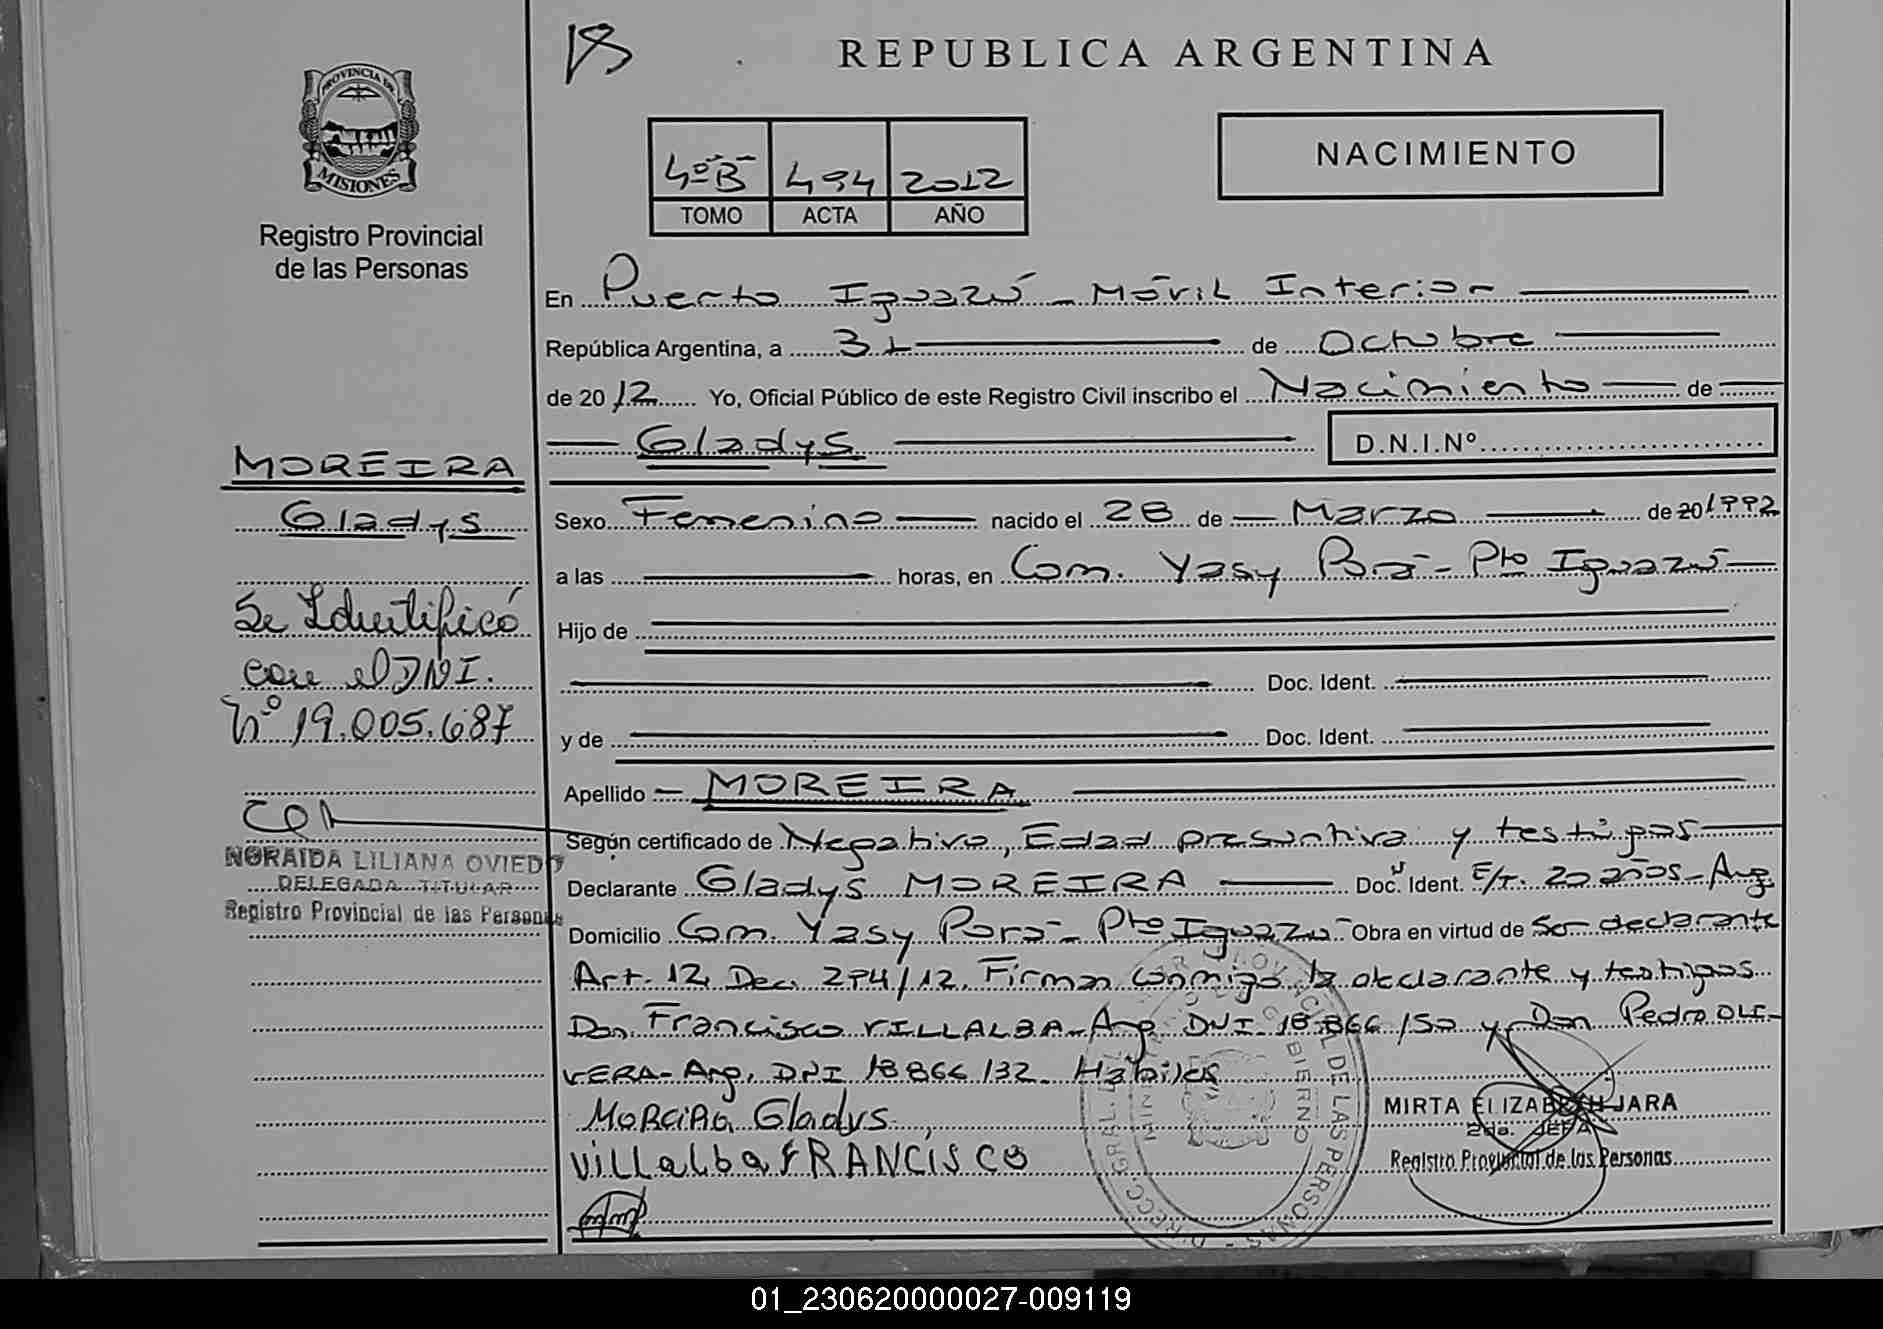 REPUBLICA ARGENTINA
PROVINCIA DE
MISIONES
Registro Provincial
de las Personas
4ºB 494 2012
TOMO ACTA AÑO
NACIMIENTO
En Puerto Iguazú - Móvil Interior
República Argentina, a 31 de Octubre
de 2012 Yo, Oficial Público de este Registro Civil inscribo el Nacimiento de
Gladys D.N.I.Nº
MOREIRA
Gladys
Se Identificó
con el DNI.
Nº 19.005.687
NORAIDA LILIANA OVIEDO
DELEGADA TITULAR
Registro Provincial de las Personas
Sexo Femenino nacido el 28 de Marzo de 20 1992
a las horas, en Com. Yasy Porá - Pto Iguazú
Hijo de
Doc. Ident.
y de Doc. Ident.
Apellido MOREIRA
Según certificado de Negativo, Edad presuntiva y testigos
Declarante Gladys MOREIRA Doc. Ident. E/T. 20 años - Arg.
Domicilio Com. Yasy Porá - Pto Iguazú Obra en virtud de Ser declarante
Art. 12, Dec. 294/12. Firman conmigo la declarante y testigos
Don Francisco VILLALBA - Arg. DNI 18 866 150 y Don Pedro OLI-
VERA - Arg. DNI 18 866 132. Hábiles
MOREIRA Gladys
VillalbA FRANCISCO
MIRTA ELIZABETH JARA
2da. JEFA
Registro Provincial de las Personas
01_230620000027-009119